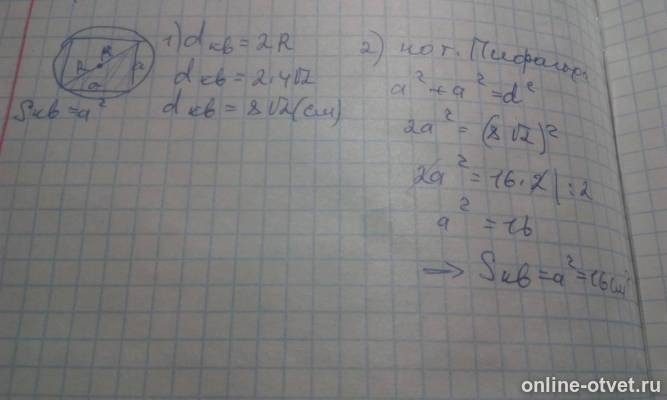 R R a
a
Sкв = a²
1) dкв = 2R
dкв = 2·4√2
dкв = 8√2 (см)
2) по т. Пифагора
a² + a² = d²
2a² = (8√2)²
2a² = 16·2 | :2
a² = 16
⇒ Sкв = a² = 16 см²
online-otvet.ru